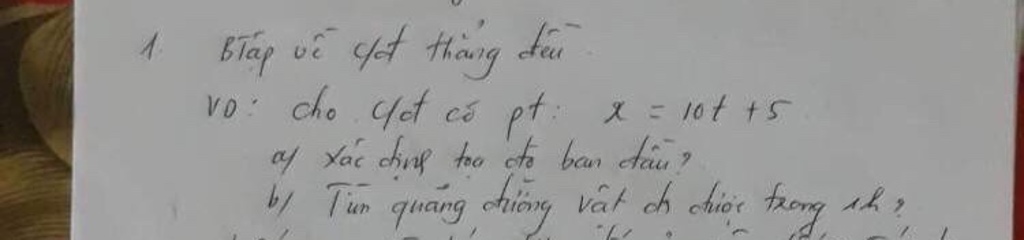 1. BTập về c/đ thẳng đều
VD: cho c/đ có pt: x = 10t + 5
a/ Xác định tọa độ ban đầu?
b/ Tìm quãng đường vật đi được trong h?